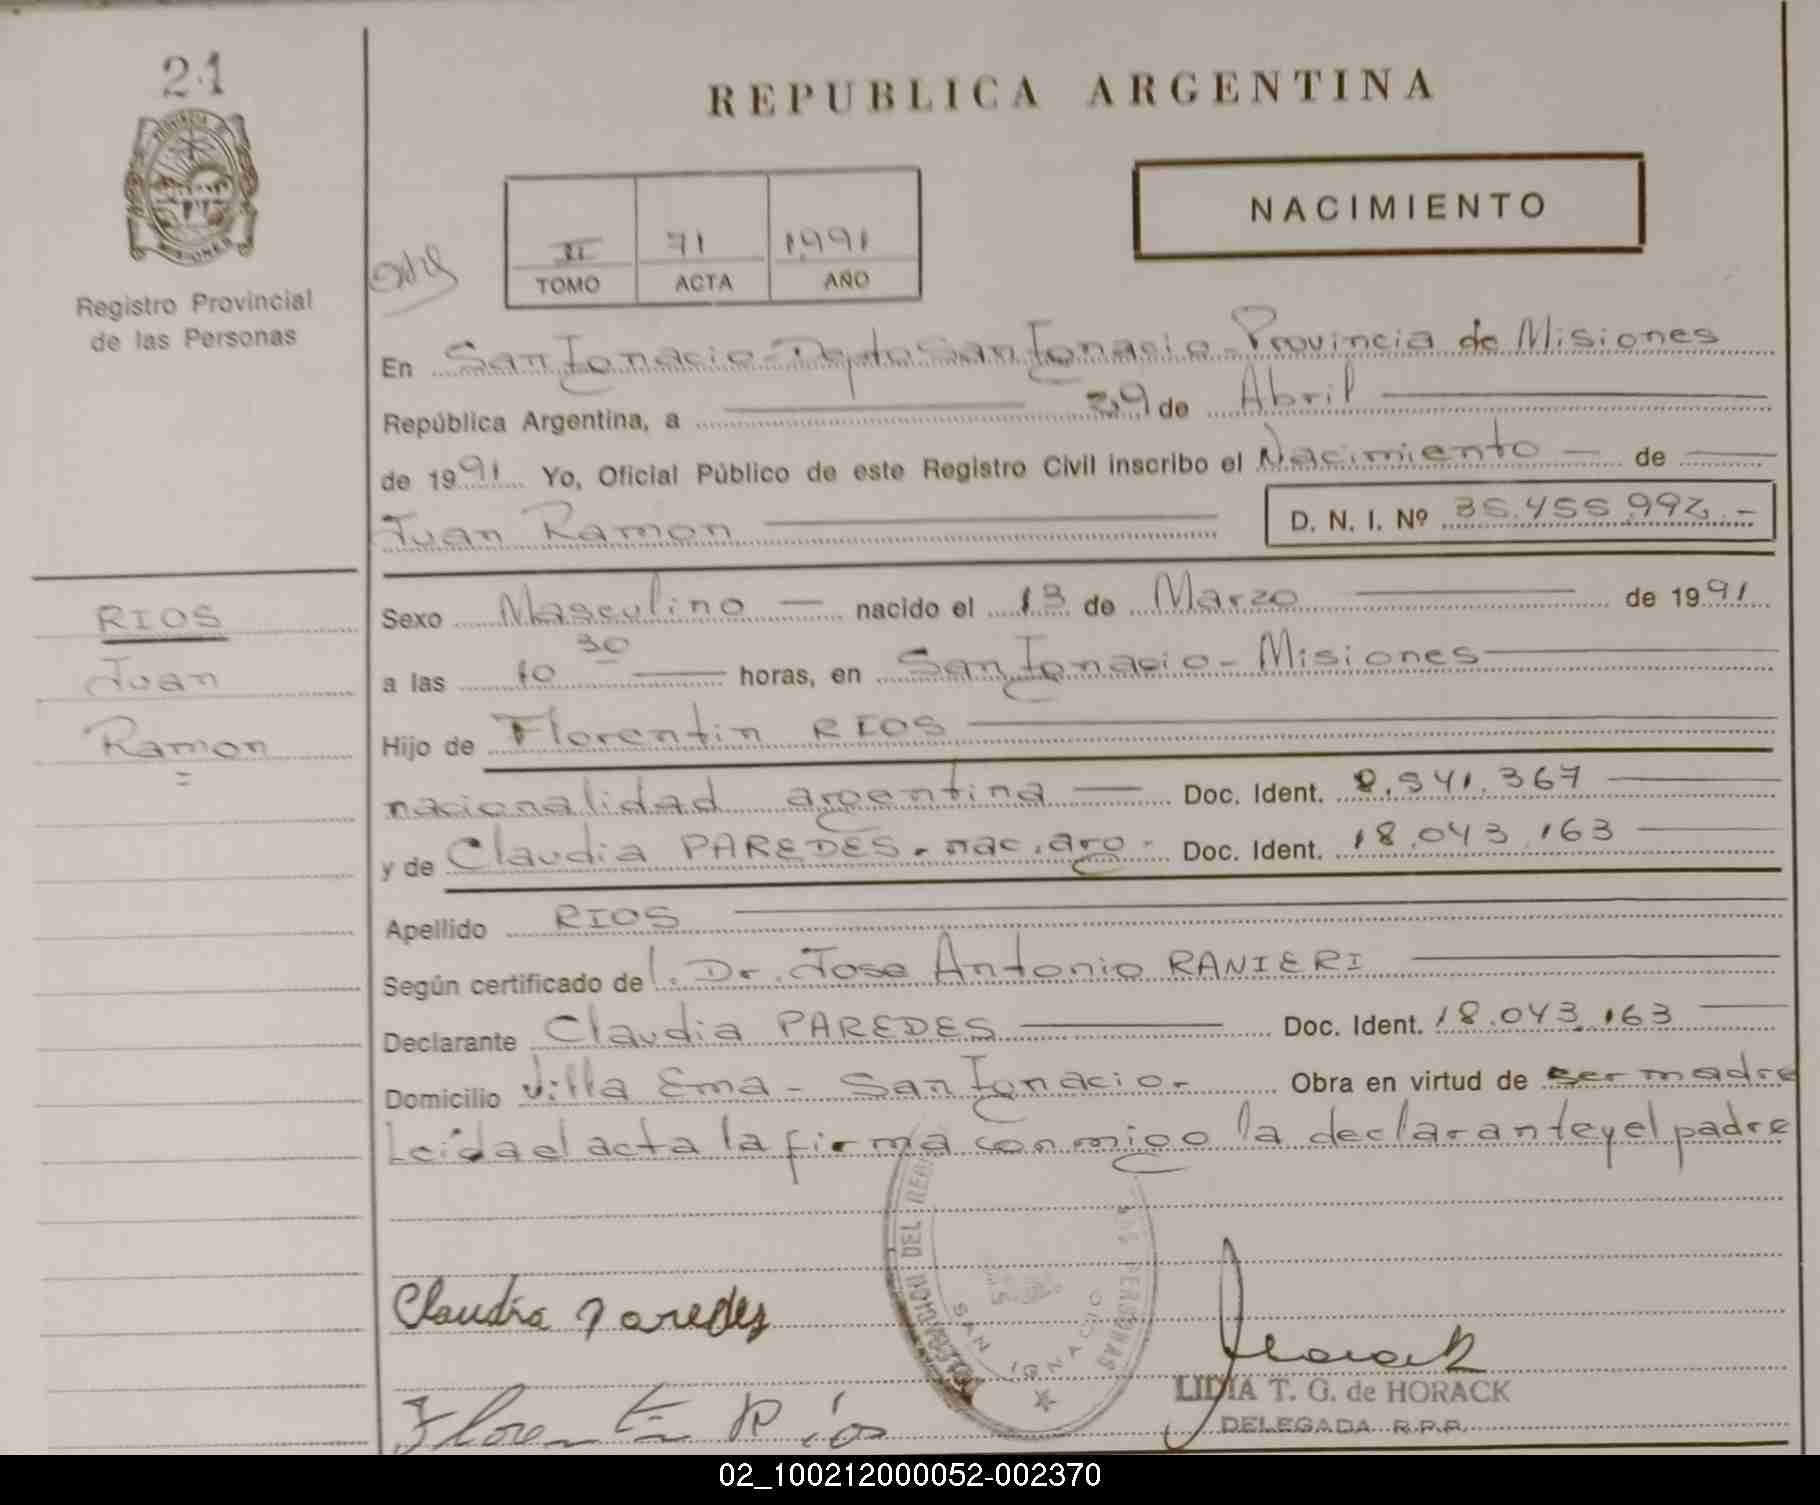 21
REPUBLICA ARGENTINA
NACIMIENTO
II 71 1991
TOMO ACTA AÑO
Registro Provincial
de las Personas
En San Ignacio-Dpto San Ignacio-Provincia de Misiones
República Argentina, a 29 de Abril
de 1991 Yo, Oficial Público de este Registro Civil inscribo el Nacimiento — de
Juan Ramon D. N. I. Nº 35.455.992.-
RIOS
Juan
Ramon
=
Sexo Masculino — nacido el 13 de Marzo de 1991
a las 10 30 horas, en San Ignacio - Misiones
Hijo de Florentin RIOS
nacionalidad argentina — Doc. Ident. 8.341.367
y de Claudia PAREDES. nac. arg - Doc. Ident. 18.043.163
Apellido RIOS
Según certificado de Dr. Jose Antonio RANIERI
Declarante Claudia PAREDES Doc. Ident. 18.043.163
Domicilio Villa Ema - San Ignacio.- Obra en virtud de ser madre
Leida el acta la firma conmigo la declarante y el padre
DEL REG
LAS PERSONAS
SAN IGNACIO
Claudia Paredes
Horack
LIDIA T. G. de HORACK
DELEGADA R.P.P.
Florentin Rios
02_100212000052-002370